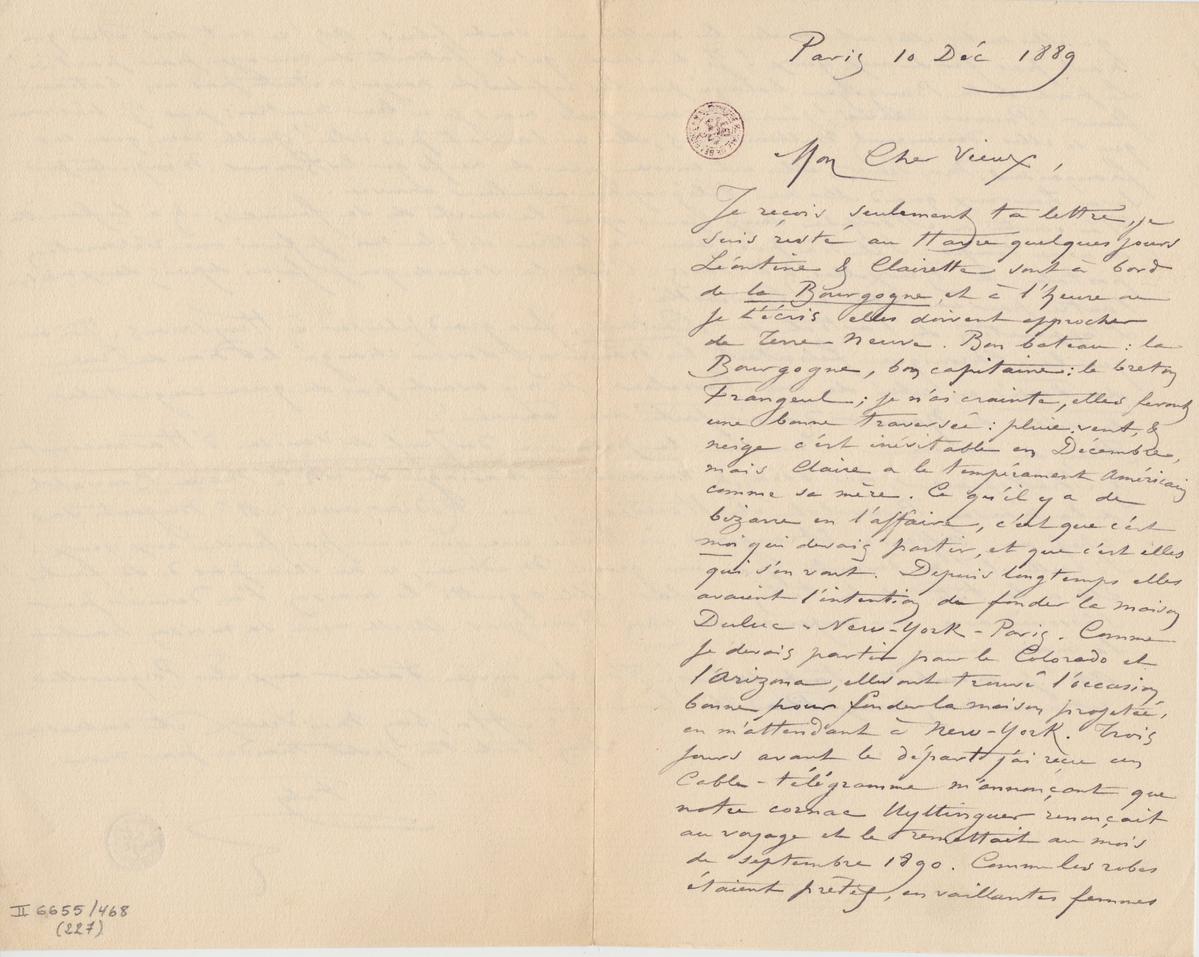 Paris 10 Déc 1889
Mon Cher Vieux,
Je reçois seulement ta lettre, je
suis resté au Havre quelques jours
Léontine & Clairette sont à bord
de la Bourgogne, et à l'heure ou
je t'écris elles doivent approcher
de Terre-Neuve. Bon bateau : la
Bourgogne, bon capitaine : le breton
Frangeul ; je n'ai crainte, elles feront
une bonne traversée : pluie, vent, &
neige c'est inévitable en Décembre,
mais Claire a le tempérament Américain
comme sa mère. Ce qu'il y a de
bizarre en l'affaire, c'est que c'est
moi qui devais partir, et que c'est elles
qui s'en vont. Depuis longtemps elles
avaient l'intention de fonder la maison
Duluc - New-York - Paris. Comme
je devais partir pour le Colorado et
l'Arizona, elles ont trouvé l'occasion
bonne pour fonder la maison projetée,
en m'attendant à New-York. Trois
jours avant le départ j'ai reçu un
Cable-télégramme m'annonçant que
notre cornac renonçait
au voyage et le remettait au mois
de septembre 1890. Comme les robes
étaient prêtes, en vaillantes femmes
II 6655/468
(227)